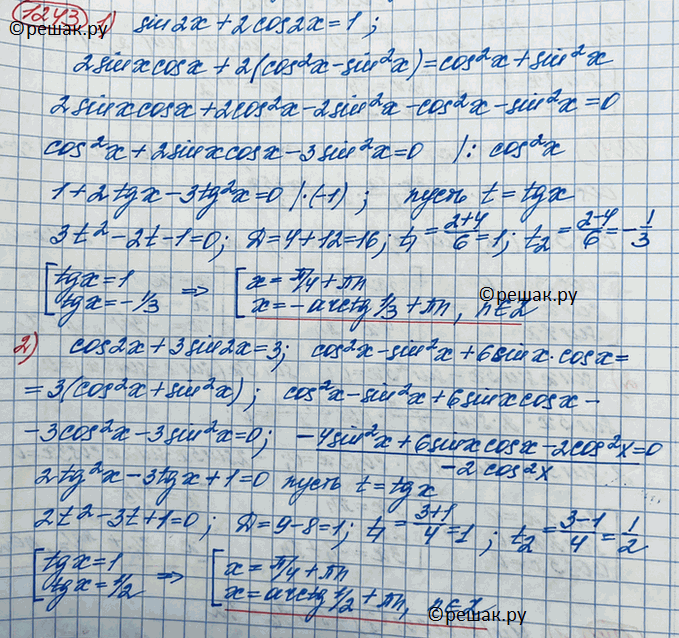 1243 1) sin2x + 2cos2x = 1 ;
©решак.ру
2sinxcosx + 2(cos²x - sin²x) = cos²x + sin²x
2sinxcosx + 2cos²x - 2sin²x - cos²x - sin²x = 0
cos²x + 2sinxcosx - 3sin²x = 0 /: cos²x
1 + 2tgx - 3tg²x = 0 | ·(-1) ; пусть t = tgx
3t² - 2t - 1 = 0; D = 4 + 12 = 16; t₁ = (2+4)/6 = 1; t₂ = (2-4)/6 = -1/3
[ tgx = 1 ⇒ [ x = π/4 + πn
tgx = -1/3 x = -arctg 1/3 + πn, n∈Z
©решак.ру
2) cos2x + 3sin2x = 3; cos²x - sin²x + 6sinx·cosx =
= 3(cos²x + sin²x) ; cos²x - sin²x + 6sinxcosx -
- 3cos²x - 3sin²x = 0; (-4sin²x + 6sinxcosx - 2cos²x)/(-2cos²x) = 0
2tg²x - 3tgx + 1 = 0 пусть t = tgx
2t² - 3t + 1 = 0 ; D = 9 - 8 = 1; t₁ = (3+1)/4 = 1 ; t₂ = (3-1)/4 = 1/2
[ tgx = 1 ⇒ [ x = π/4 + πn
tgx = 1/2 x = arctg 1/2 + πn, n∈Z
©решак.ру